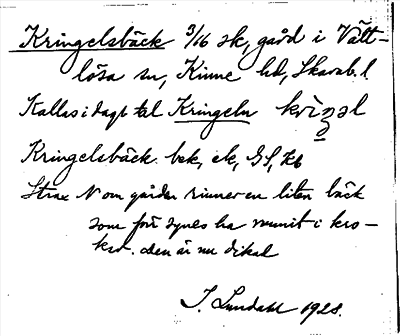 Kringelsbäck 3/16 sk, gård i Vätt-
lösa sn, Kinne hd, Skarab. l
Kallas i dagl tal Kringeln
Kringelsbäck bek, ek, GS, Kb
Strax N om gården rinner en liten bäck
som förr synes ha runnit i kro-
kar. den är nu dikad
I. Lundahl 1928.